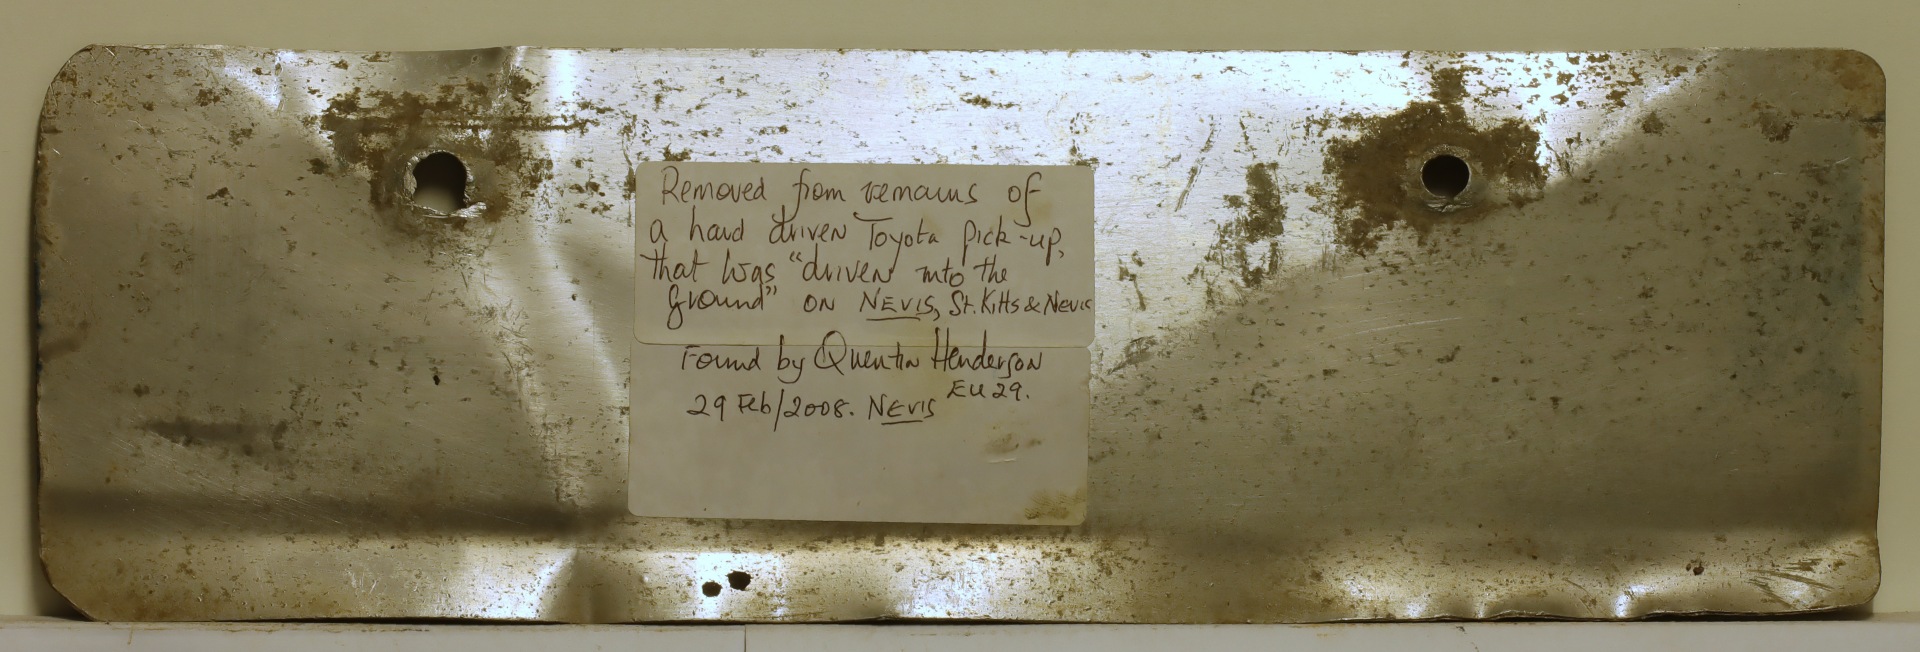 Removed from remains of
a hard driven Toyota pick-up,
that was "driven into the
ground" on NEVIS, St. Kitts & Nevis
Found by Quentin Henderson
EU 29.
29 Feb/2008. NEVIS